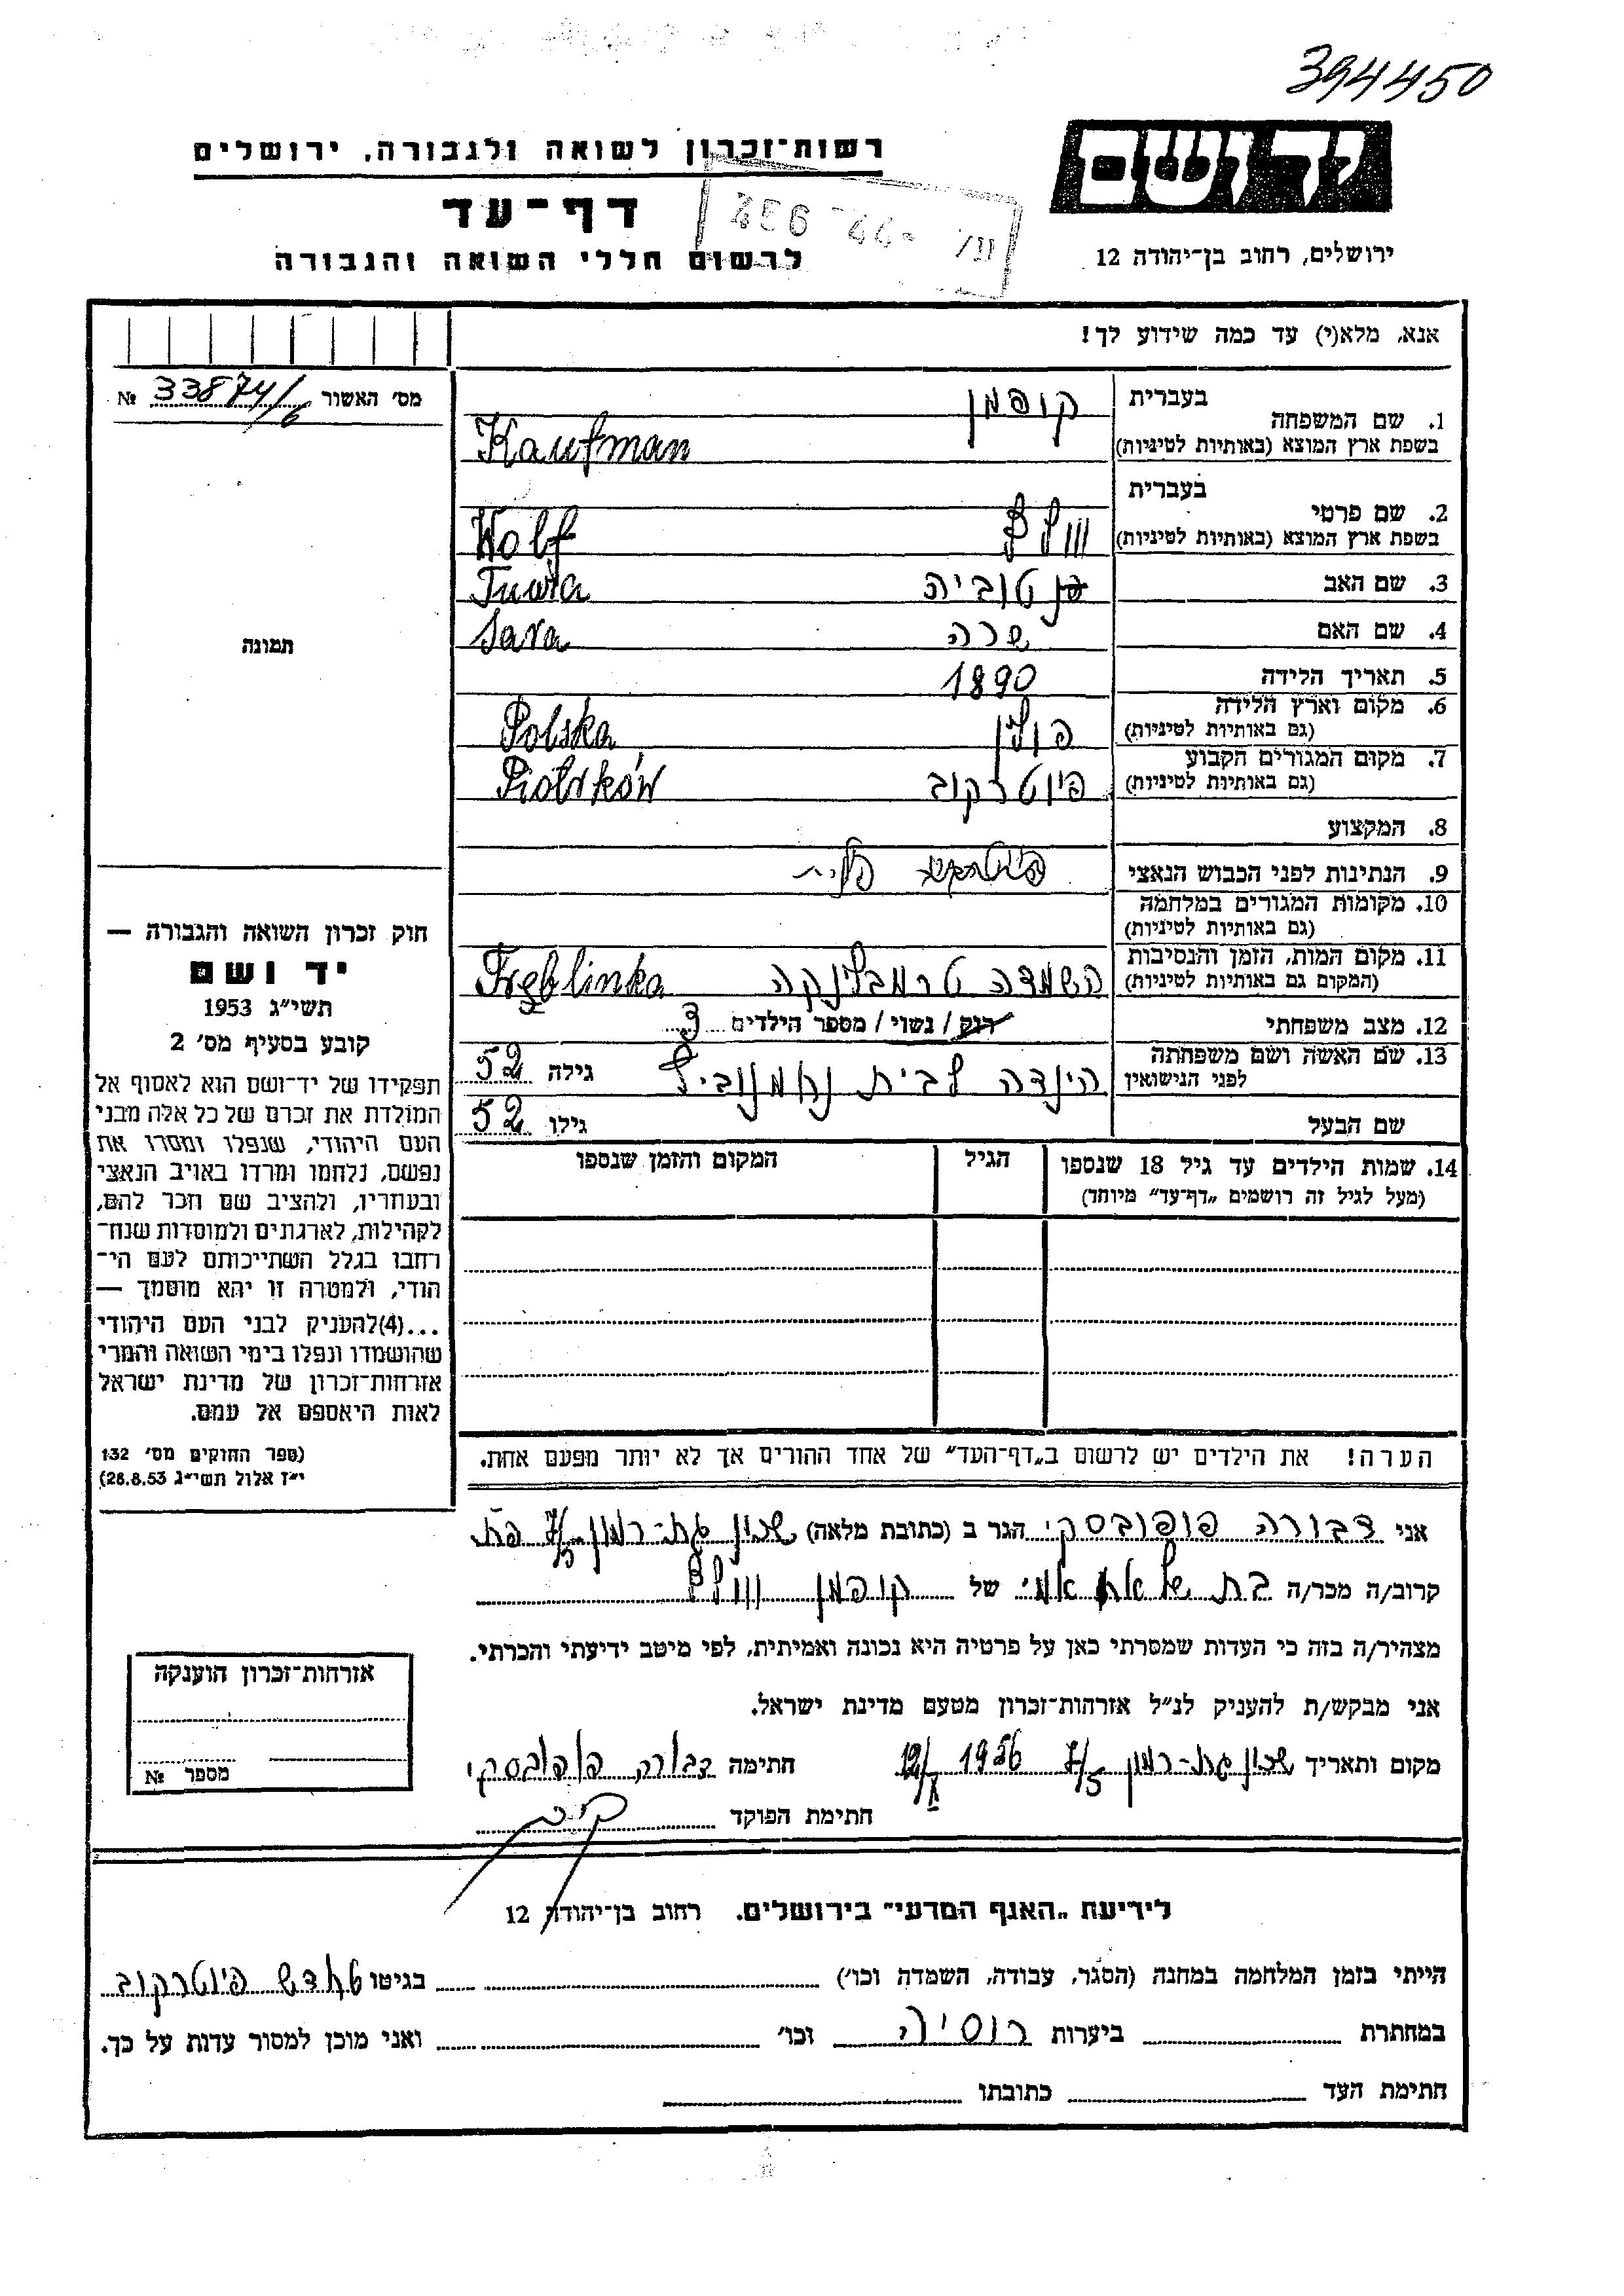 394450
רשות־זכרון לשואה ולגבורה, ירושלים
יד ושם
דף־עד
לרשום חללי השואה והגבורה
ירושלים, רחוב בן־יהודה 12
אנא, מלא(י) עד כמה שידוע לך!
מס׳ האשור 33874/6 №
1. שם המשפחה בעברית קופמן
בשפת ארץ המוצא (באותיות לטיניות) Kaufman
2. שם פרטי בעברית וולף
בשפת ארץ המוצא (באותיות לטיניות) Wolf
3. שם האב טוביה Tuwia
4. שם האם שרה Sara
5. תאריך הלידה 1890
6. מקום וארץ הלידה פולין Polska
(גם באותיות לטיניות)
7. מקום המגורים הקבוע פיוטרקוב Piotrków
(גם באותיות לטיניות)
8. המקצוע
9. הנתינות לפני הכבוש הנאצי
10. מקומות המגורים במלחמה
(גם באותיות לטיניות)
11. מקום המות, הזמן והנסיבות השמדה טרמבלינקה Tręblinka
(המקום גם באותיות לטיניות)
12. מצב משפחתי רווק / נשוי / מספר הילדים 3
13. שם האשה ושם משפחתה הינדה לבית גילה 52
לפני הנישואין
שם הבעל גילו 52
14. שמות הילדים עד גיל 18 שנספו הגיל המקום והזמן שנספו
(מעל לגיל זה רושמים „דף־עד״ מיוחד)
הערה! את הילדים יש לרשום ב„דף־העד״ של אחד ההורים אך לא יותר מפעם אחת.
תמונה
חוק זכרון השואה והגבורה —
יד ושם
תשי״ג 1953
קובע בסעיף מס׳ 2
תפקידו של יד־ושם הוא לאסוף אל
המולדת את זכרם של כל אלה מבני
העם היהודי, שנפלו ומסרו את
נפשם, נלחמו ומרדו באויב הנאצי
ובעוזריו, ולהציב שם וזכר להם,
לקהילות, לארגונים ולמוסדות שנח־
רבו בגלל השתייכותם לעם הי־
הודי, ולמטרה זו יהא מוסמך —
...(4)להעניק לבני העם היהודי
שהושמדו ונפלו בימי השואה והמרי
אזרחות־זכרון של מדינת ישראל
לאות היאספם אל עמם.
(ספר החוקים מס׳ 132
י״ז אלול תשי״ג 28.8.53)
אני דבורה פופובסקי הגר ב (כתובת מלאה) שכון גת־רמון 7/5 פת
קרוב/ה מכר/ה בת של אח אמי של קופמן וולף
מצהיר/ה בזה כי העדות שמסרתי כאן על פרטיה היא נכונה ואמיתית, לפי מיטב ידיעתי והכרתי.
אני מבקש/ת להעניק לנ״ל אזרחות־זכרון מטעם מדינת ישראל.
מקום ותאריך שכון גת־רמון 7/5 1956 12/X חתימה דבורה פופובסקי
חתימת הפוקד
אזרחות־זכרון הוענקה
מספר №
לידיעת „האגף המדעי״ בירושלים. רחוב בן־יהודה 12
הייתי בזמן המלחמה במחנה (הסגר, עבודה, השמדה וכו׳) בגיטו פיוטרקוב
במחתרת ביערות רוסיה וכו׳ ואני מוכן למסור עדות על כך.
חתימת העד כתובתו